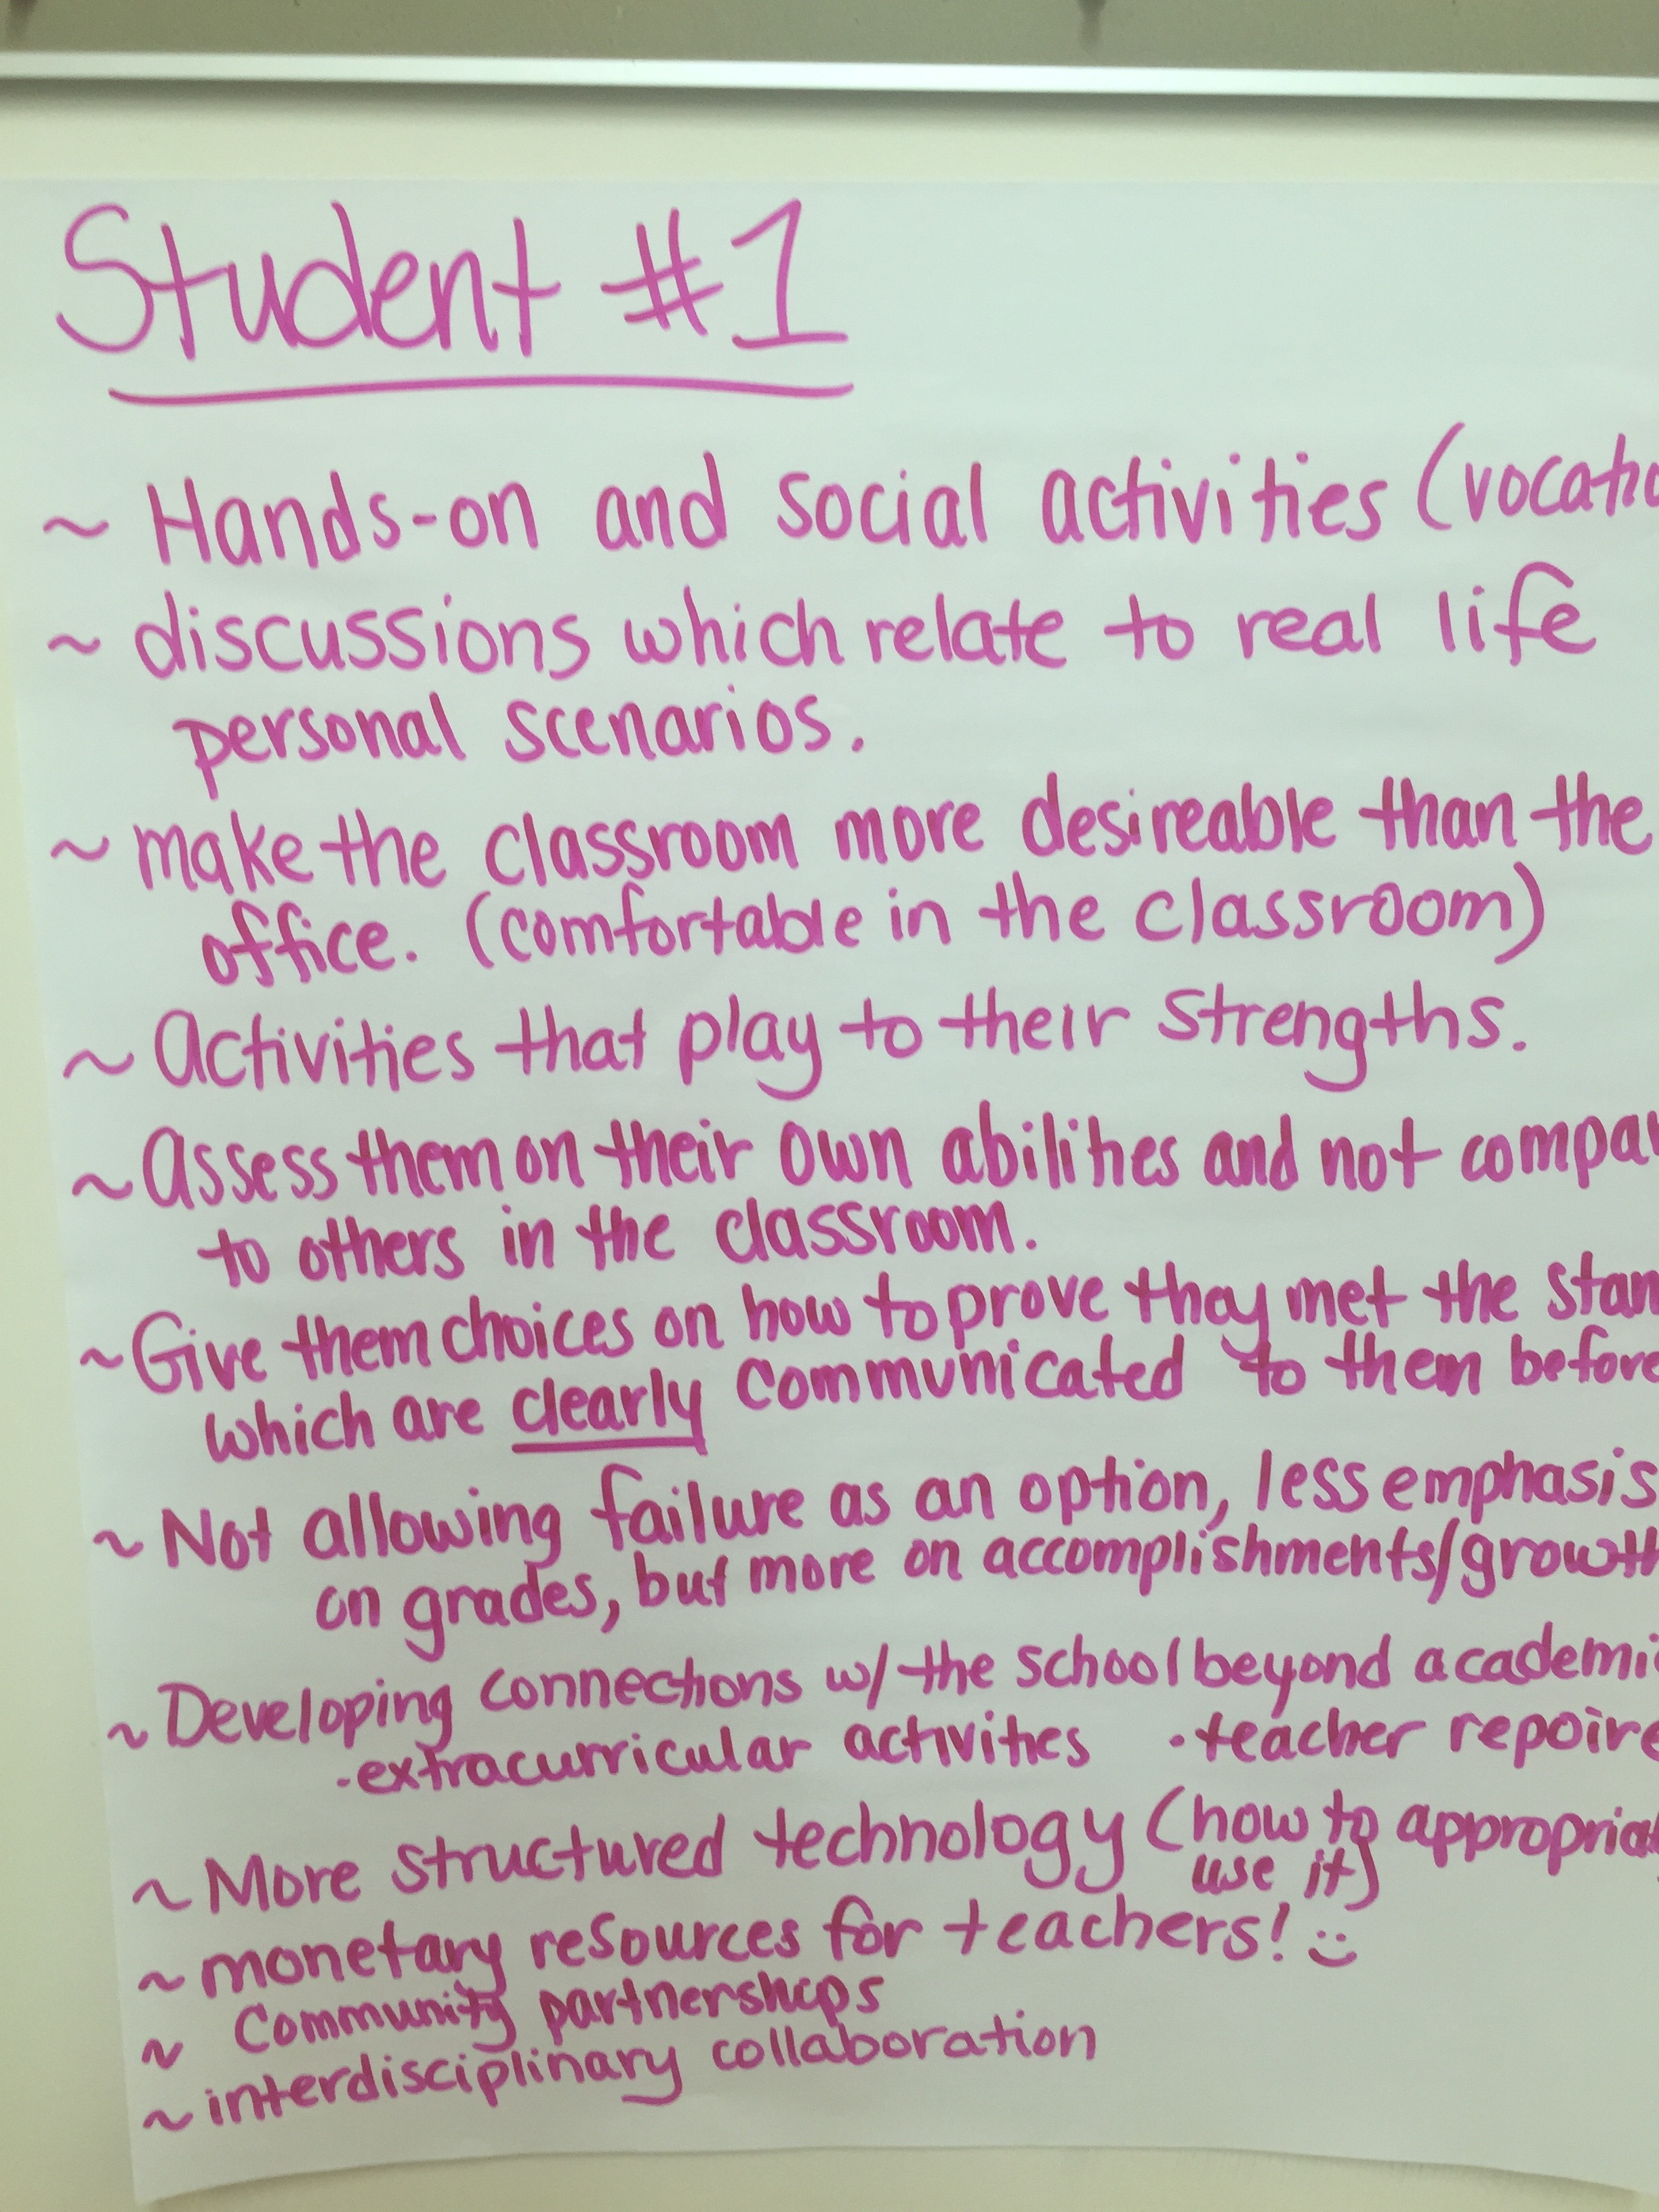 Student #1
~ Hands-on and social activities (vocatio
~ discussions which relate to real life
personal scenarios.
~ make the classroom more desireable than the
office. (comfortable in the classroom)
~ Activities that play to their strengths.
~ Assess them on their own abilities and not compar
to others in the classroom.
~ Give them choices on how to prove they met the stan
which are clearly communicated to them before
~ Not allowing failure as an option, less emphasis
on grades, but more on accomplishments/growth
~ Developing connections w/ the school beyond academi
·extracurricular activities ·teacher repoire
~ More structured technology (how to appropriat
use it)
~ monetary resources for teachers! :)
~ Community partnerships
~ interdisciplinary collaboration